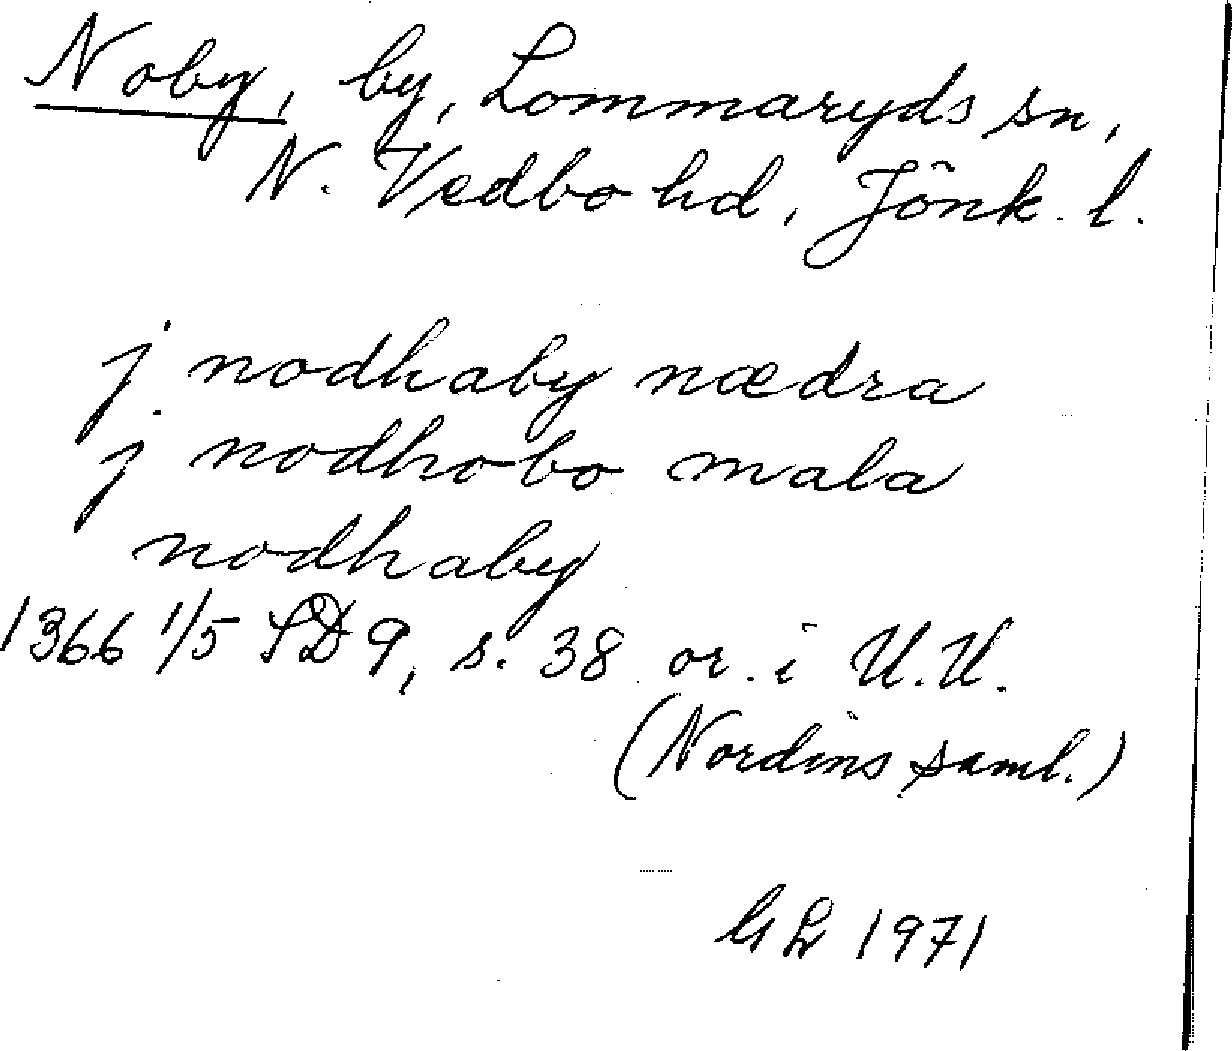 Noby, by, Lommaryds sn,
N. Vedbo hd, Jönk. l.
j nodhaby nædra
j nodhobo mala
nodhaby
1366 1/5 SD 9, s. 38 or. i U.U.
(Nordins saml.)
GL 1971